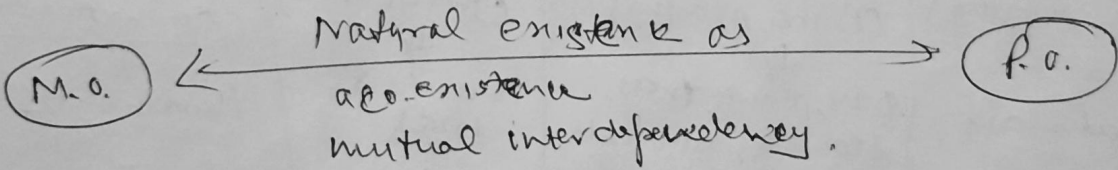 Natural existence as
M.O. P.O.
aco-existence
mutual interdependency.